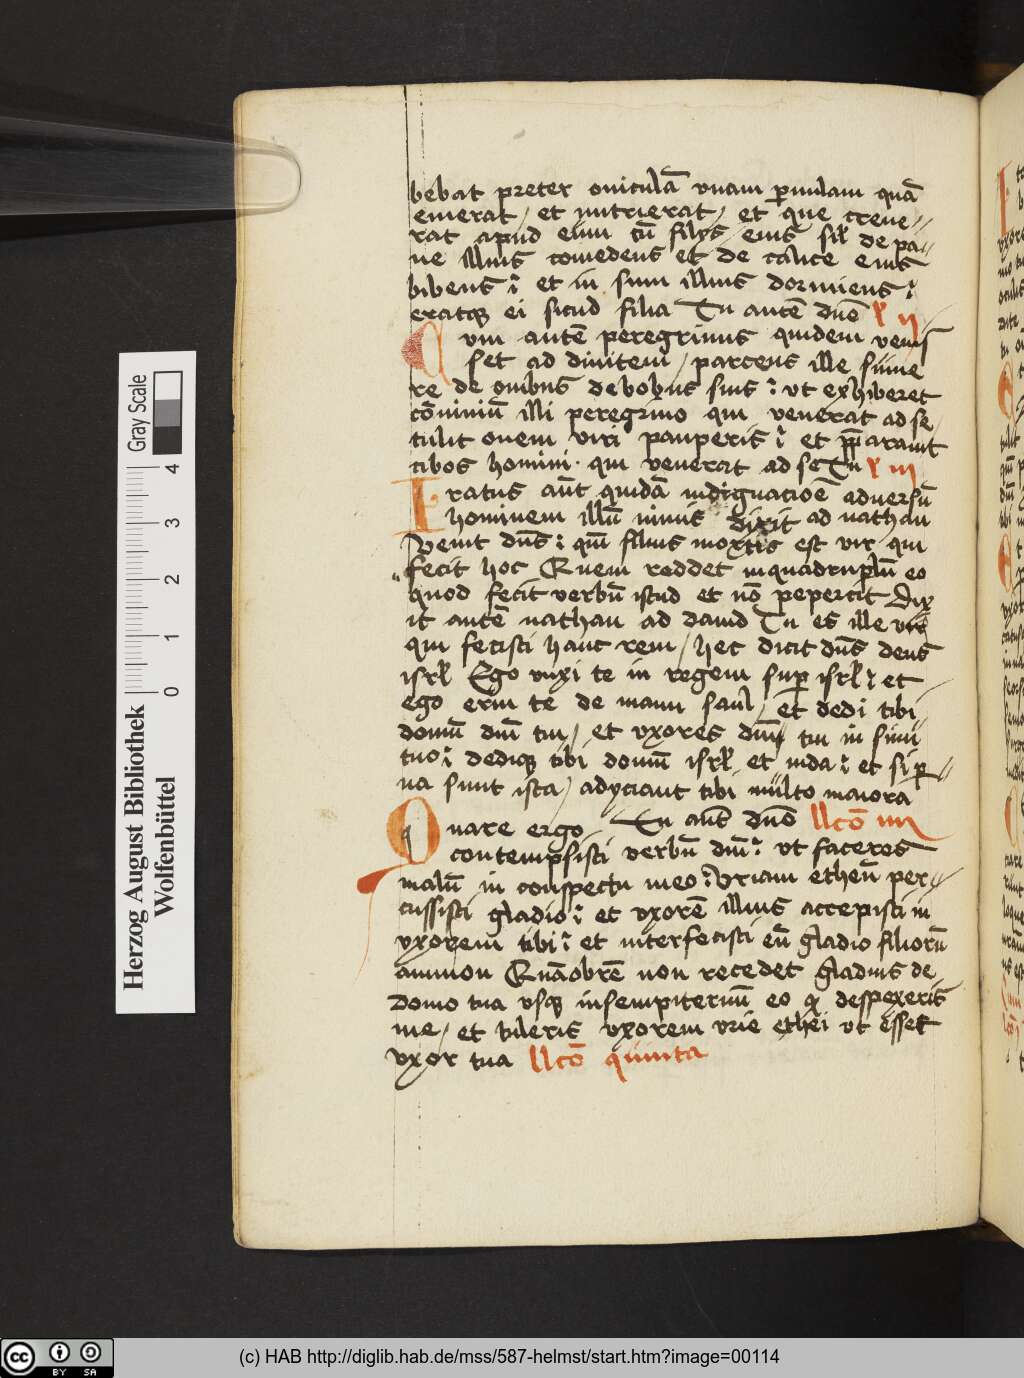 bebat preter ouiculā vnam ꝑuulam quā
emerat / et nutrierat / et que creue//
rat apud eum cū filijs eius sił de pa//
ne illius comedens et de calice eius
bibens : et in sinu illius dormiens :
eratqꝫ ei sicud filia Tu autē dn̄e ł ij
Cum autē peregrinus quidem venis
set ad diuitem / parcens ille sume
re de ouibus de bobus suis : vt exhiberet
cōuiuiū illi peregrino qui venerat ad se /
tulit ouem viri pauperis : et p̄parauit
cibos homini · qui venerat ad se Tu ł iij
Iratus aūt quidā indignacioē aduersū
hominem illū nimis dixit ad nathan
Viuit dn̄s : qm̄ filius mortis est vir qui
fecit hoc Ouem reddet inquadruplū eo
quod fecit verbū istud et nō pepercit Dix
it autē nathan ad dauid Tu es ille vir
qui fecisti hanc rem / hec dicit dn̄s deus
isrł Ego vnxi te in regem suꝑ isrł : et
ego erui te de manu saul / et dedi tibi
domū dn̄i tui / et vxores dn̄i tui in sinu
tuo : dediqꝫ tibi domū isrł et iuda : et si ꝑ//
ua sunt ista / adyciant tibi multo maiora
Quare ergo Tu aūt dn̄e llcō iiij
contempsisti verbū dn̄i : vt faceres
malū in conspectu meo : Vriam etheū per//
cussisti gladio : et vxorē illius accepisti in
vxorem tibi : et interfecisti eū gladio filiorū
ammon Quāobrē non recedet gladius de
domo tua vsqꝫ insempiternū eo qꝫ despexeris
me / et tuleris vxorem vrie ethei vt esset
vxor tua llcō quinta
Gray Scale
0 1 2 3 4
Herzog August Bibliothek
Wolfenbüttel
cc BY SA
(c) HAB http://diglib.hab.de/mss/587-helmst/start.htm?image=00114